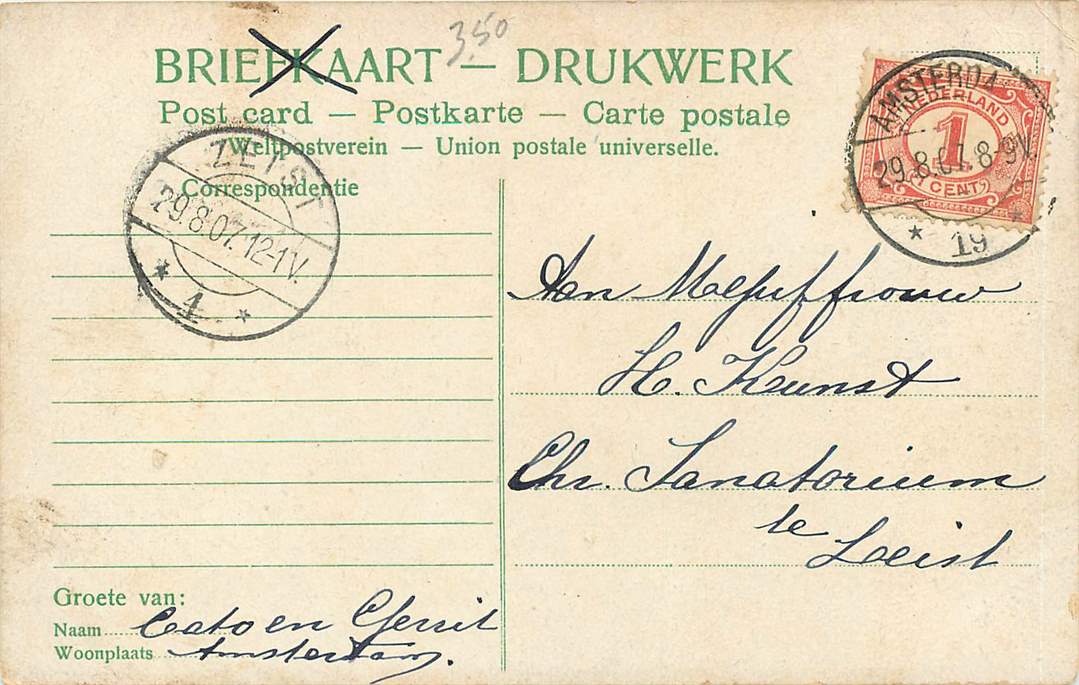 3.50
BRIEFKAART — DRUKWERK
Post card — Postkarte — Carte postale
Weltpostverein — Union postale universelle.
Correspondentie
ZEIST
29.8.07.12-1V.
1
AMSTERDA
29.8.07.8-9V.
19
NEDERLAND
1
1 CENT
Aan Mejuffrouw
H. Kunst
Chr. Sanatorium
te Zeist
Groete van:
Naam Cato en Gerrit
Woonplaats Amsterdam.